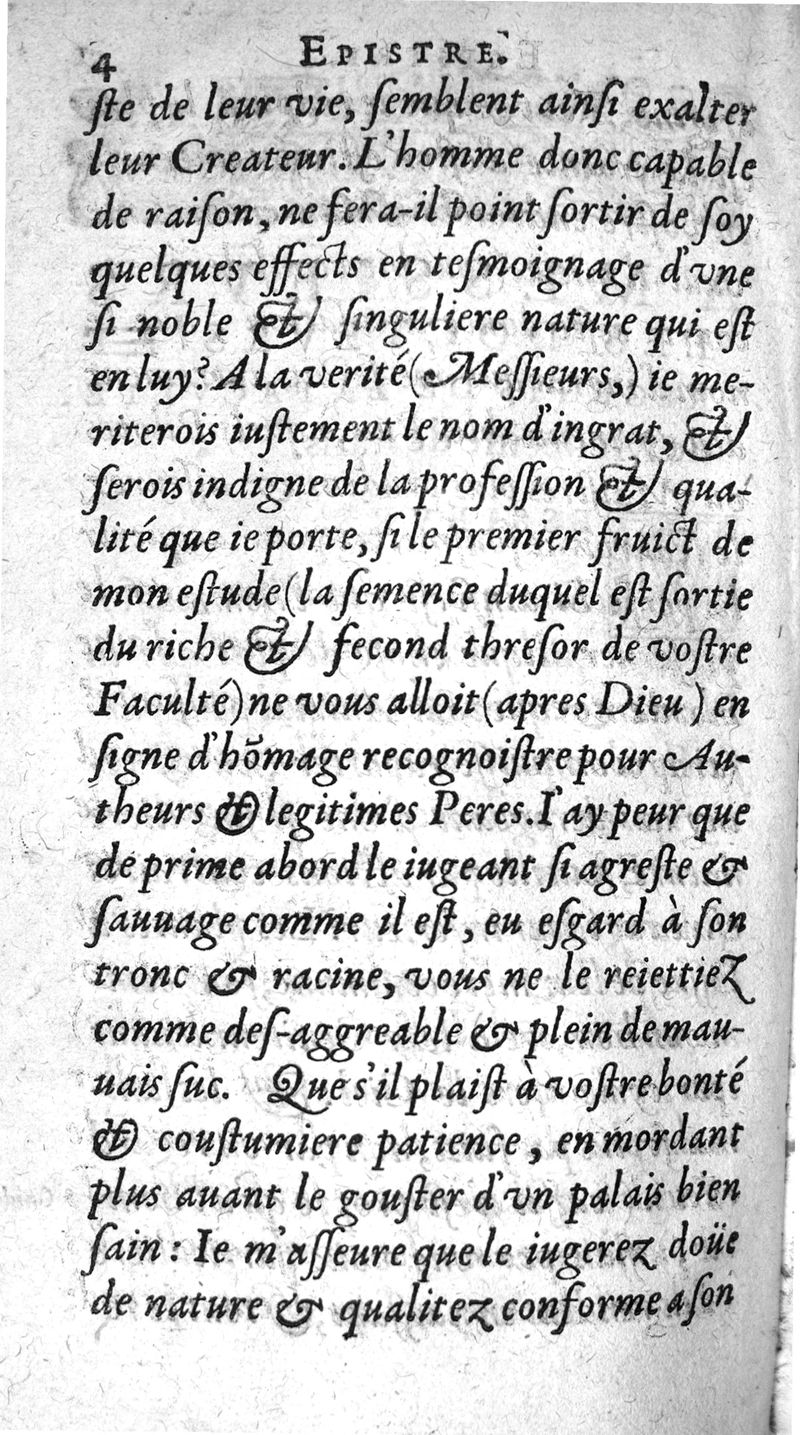 4 EPISTRE.
ſte de leur vie, ſemblent ainſi exalter
leur Createur. L'homme donc capable
de raiſon, ne fera-il point ſortir de ſoy
quelques effects en teſmoignage d'vne
ſi noble & ſinguliere nature qui eſt
en luy? A la verité (Meſſieurs,) ie me-
riterois iuſtement le nom d'ingrat, &
ſerois indigne de la profeſſion & qua-
lité que ie porte, ſi le premier fruict de
mon eſtude (la ſemence duquel eſt ſortie
du riche & fecond threſor de voſtre
Faculté) ne vous alloit (apres Dieu) en
ſigne d'hõmage recognoiſtre pour Au-
theurs & legitimes Peres. I'ay peur que
de prime abord le iugeant ſi agreſte &
ſauuage comme il eſt, eu eſgard à ſon
tronc & racine, vous ne le reiettiez
comme deſ-aggreable & plein de mau-
uais ſuc. Que s'il plaiſt à voſtre bonté
& couſtumiere patience, en mordant
plus auant le gouſter d'vn palais bien
ſain : Ie m'aſſeure que le iugerez doüe
de nature & qualitez conforme a ſon